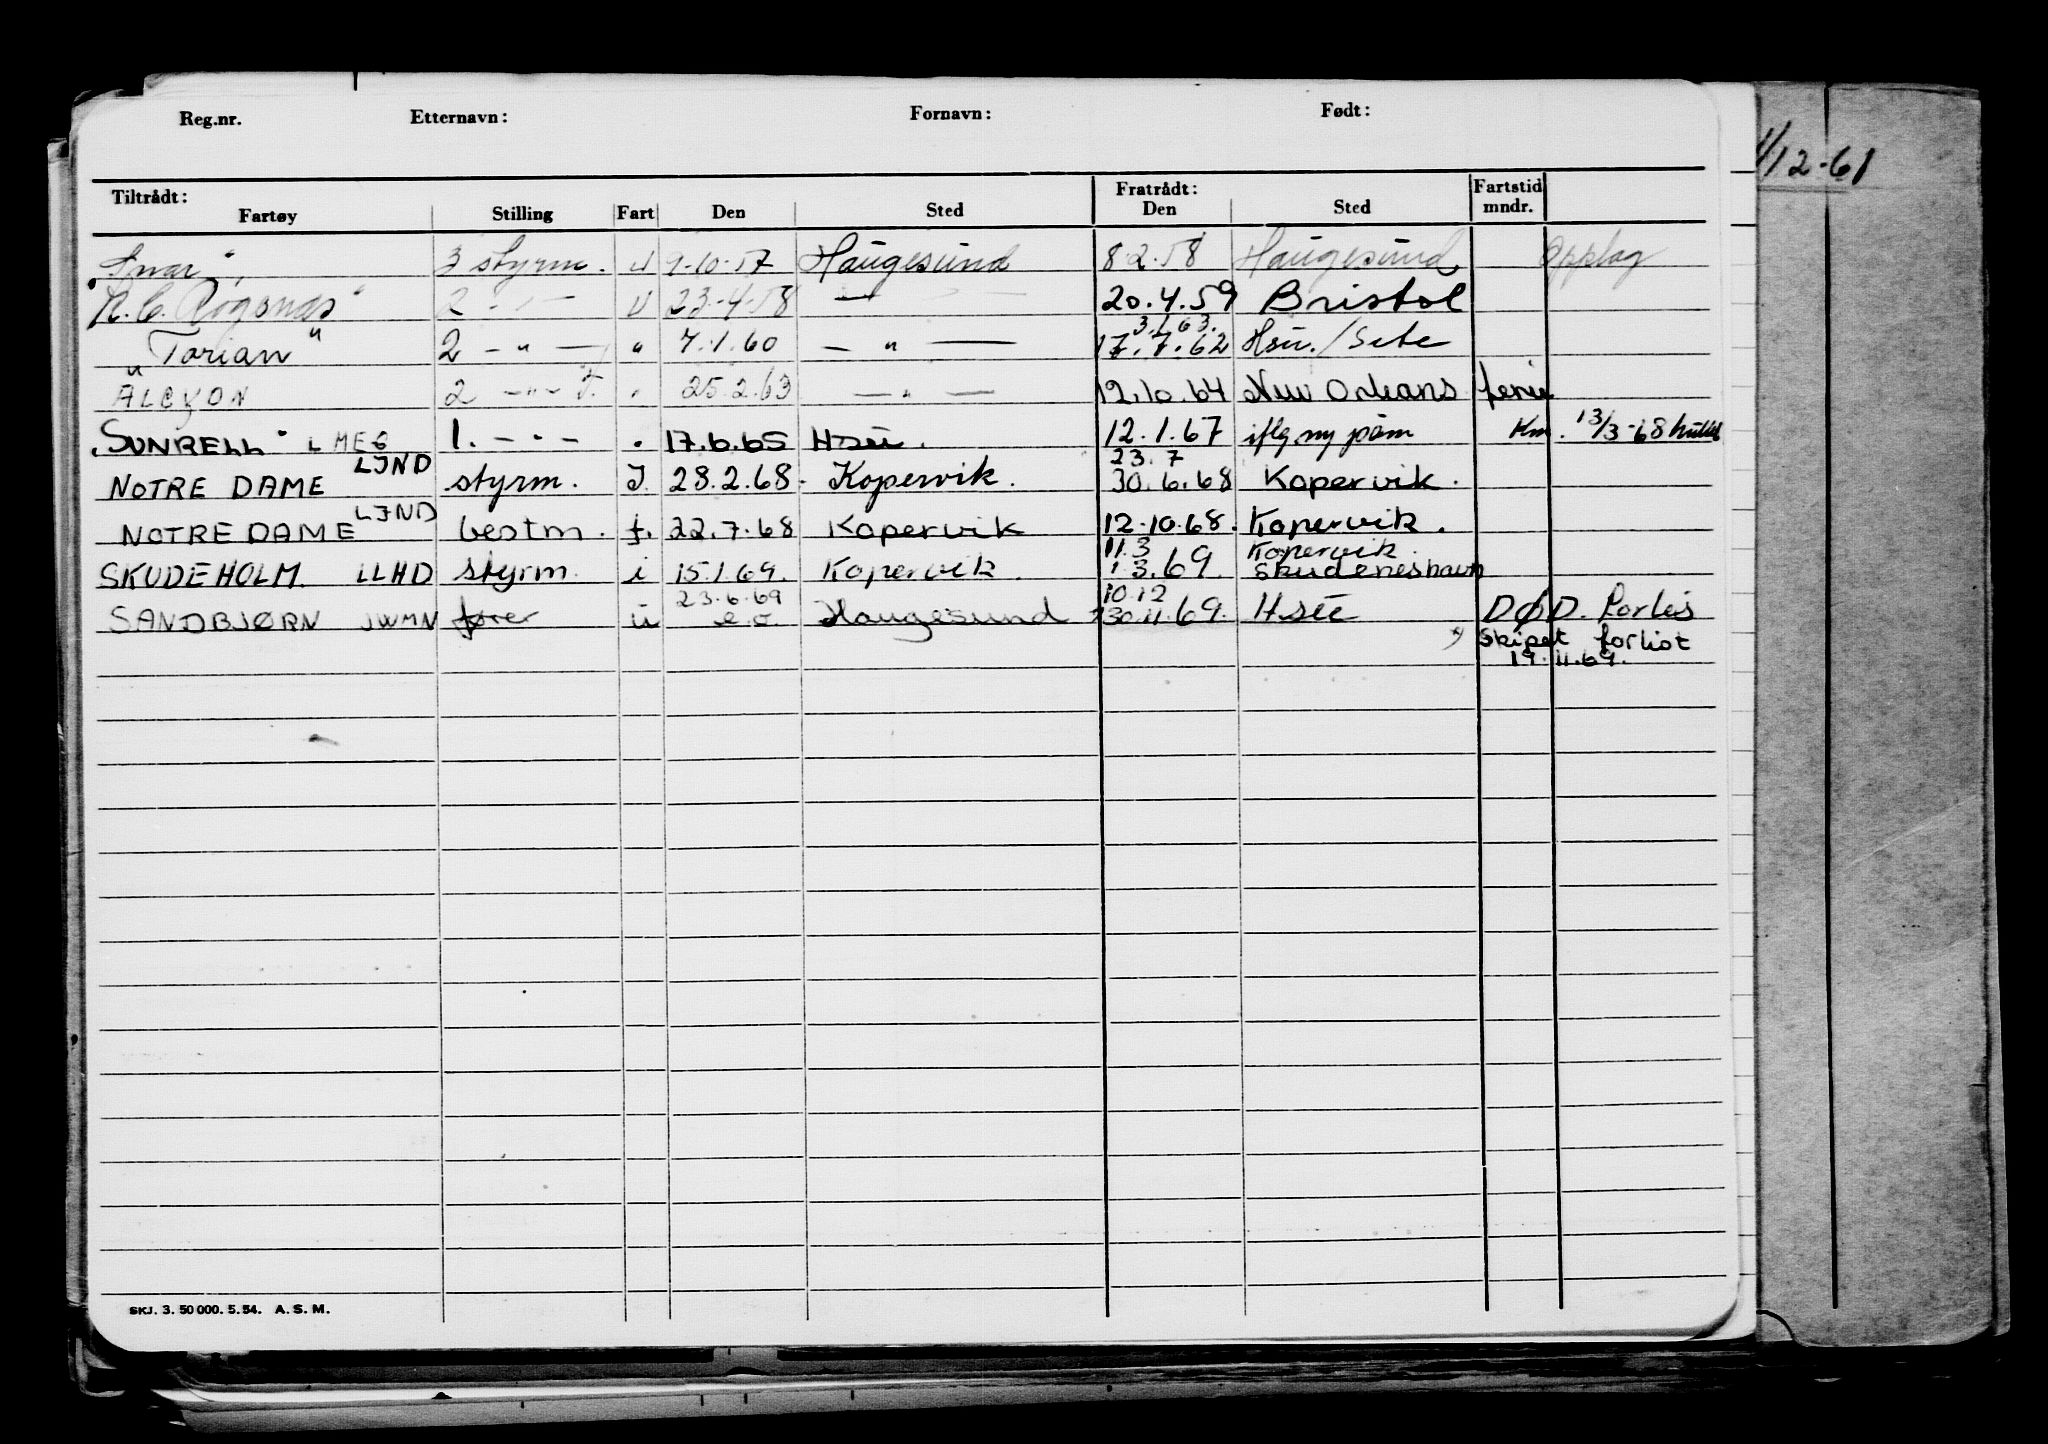 Reg.nr. Etternavn: Fornavn: Født:
1/12-61
Tiltrådt: Fratrådt: Fartstid
Fartøy Stilling Fart Den Sted Den Sted mndr.
3 styrm. u 9-10-57 Haugesund 8.2.58 Haugesund Opplag
2 - " - U 23-4-58 — " — 20.4.59 Bristol
3.1.63.
"Torian" 2 - " - " 7.1.60 — " — 17.7.62 Hsu./Sete
ALCYON 2 - " - " 25.2.63 — " — 12.10.64 New Orleans ferie
"SUNRELL" LMEG 1. - " - " 17.6.65 Hsu. 12.1.67 iflg ny påm Km. 13/3-68
LJND 23.7
NOTRE DAME styrm. I. 28.2.68. Kopervik. 30.6.68 Kopervik.
LJND
NOTRE DAME bestm. f. 22.7.68 Kopervik 12.10.68. Kopervik.
11.3 Kopervik.
SKUDEHOLM. LLHD styrm. i 15.1.69. Kopervik. 1.3.69. Skudeneshavn
23.6.69 10.12
SANDBJØRN JWMN fører u e.o. Haugesund x 30.11.69. Hsu DØD. Forlis
x) Skipet forlist
19.11.69.
SKJ. 3. 50 000. 5. 54. A. S. M.